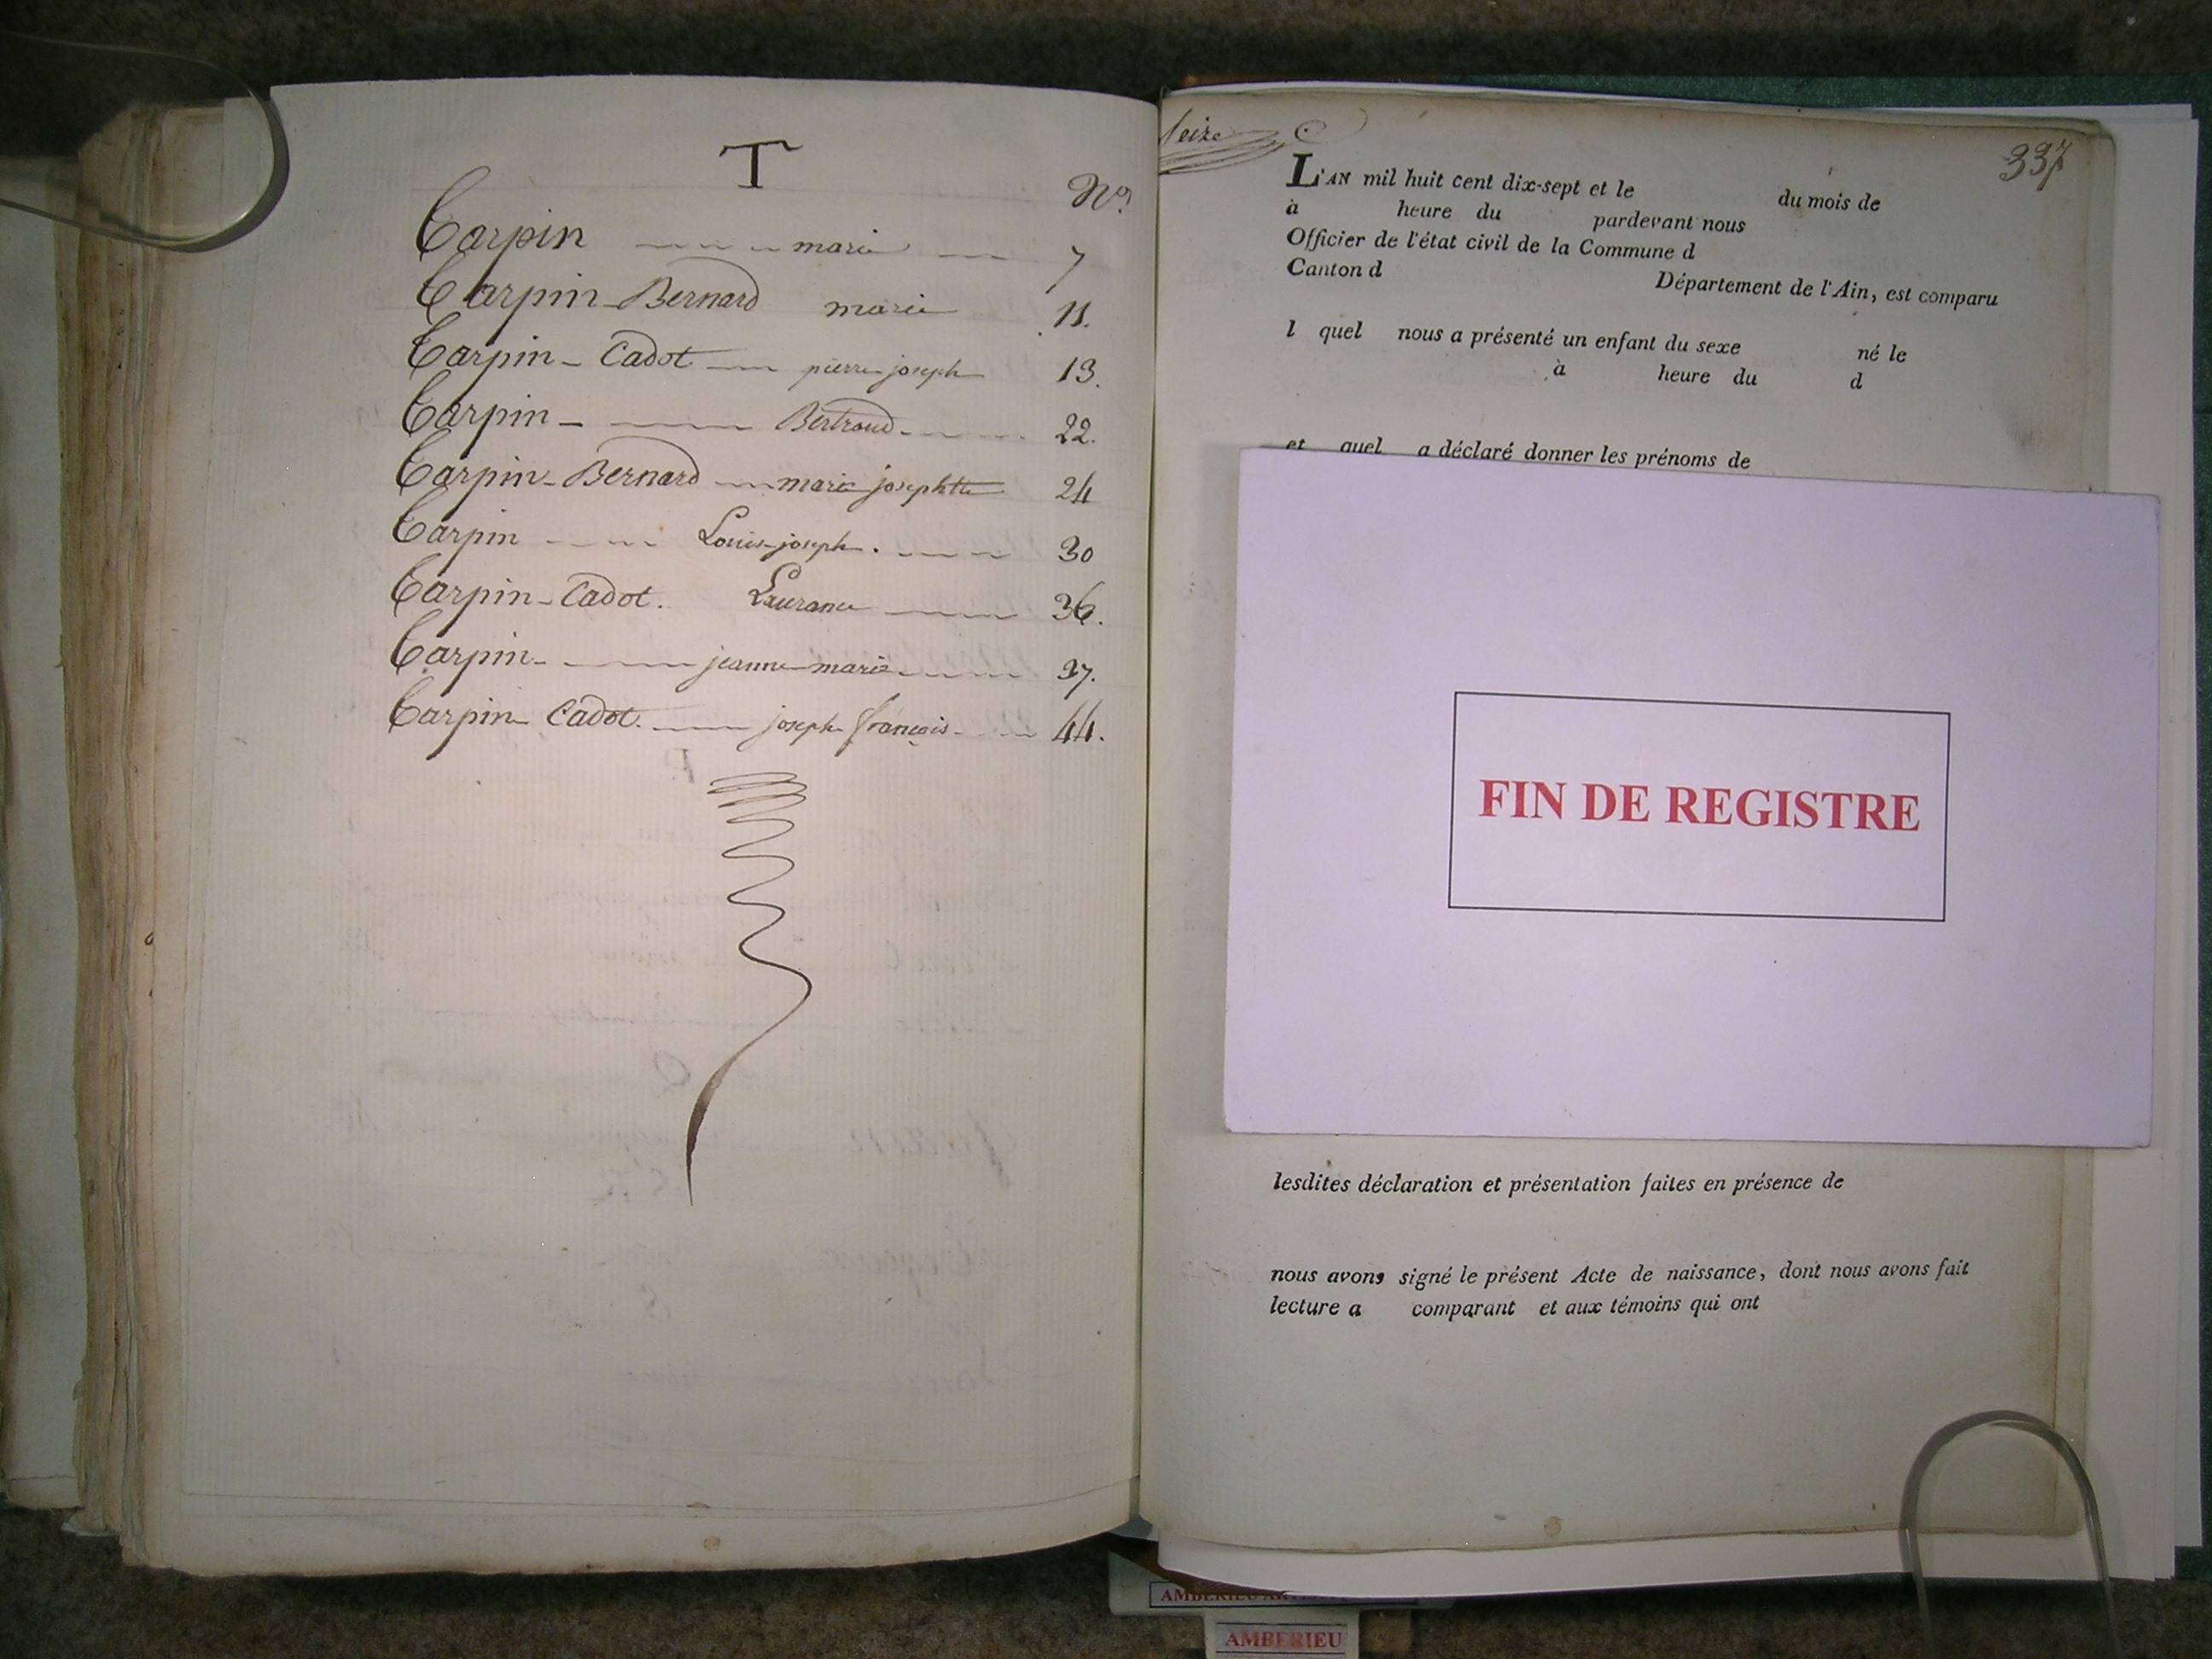 T
No.
Tarpin marie 7
Tarpin-Bernard marie 11.
Tarpin-Cadot pierre joseph 13.
Tarpin Bertrand 22.
Tarpin-Bernard marie josephtte 24
Tarpin Louis joseph. 30
Tarpin-Cadot. Laurance 36.
Tarpin jeanne marie 37.
Tarpin Cadot. joseph françois 44.
seize
337
L'AN mil huit cent dix-sept et le du mois de
à heure du pardevant nous
Officier de l'état civil de la Commune d
Canton d Département de l'Ain, est comparu
l quel nous a présenté un enfant du sexe né le
à heure du d
et quel a déclaré donner les prénoms de
FIN DE REGISTRE
lesdites déclaration et présentation faites en présence de
nous avons signé le présent Acte de naissance, dont nous avons fait
lecture a comparant et aux témoins qui ont
AMBERIEU
AMBERIEU